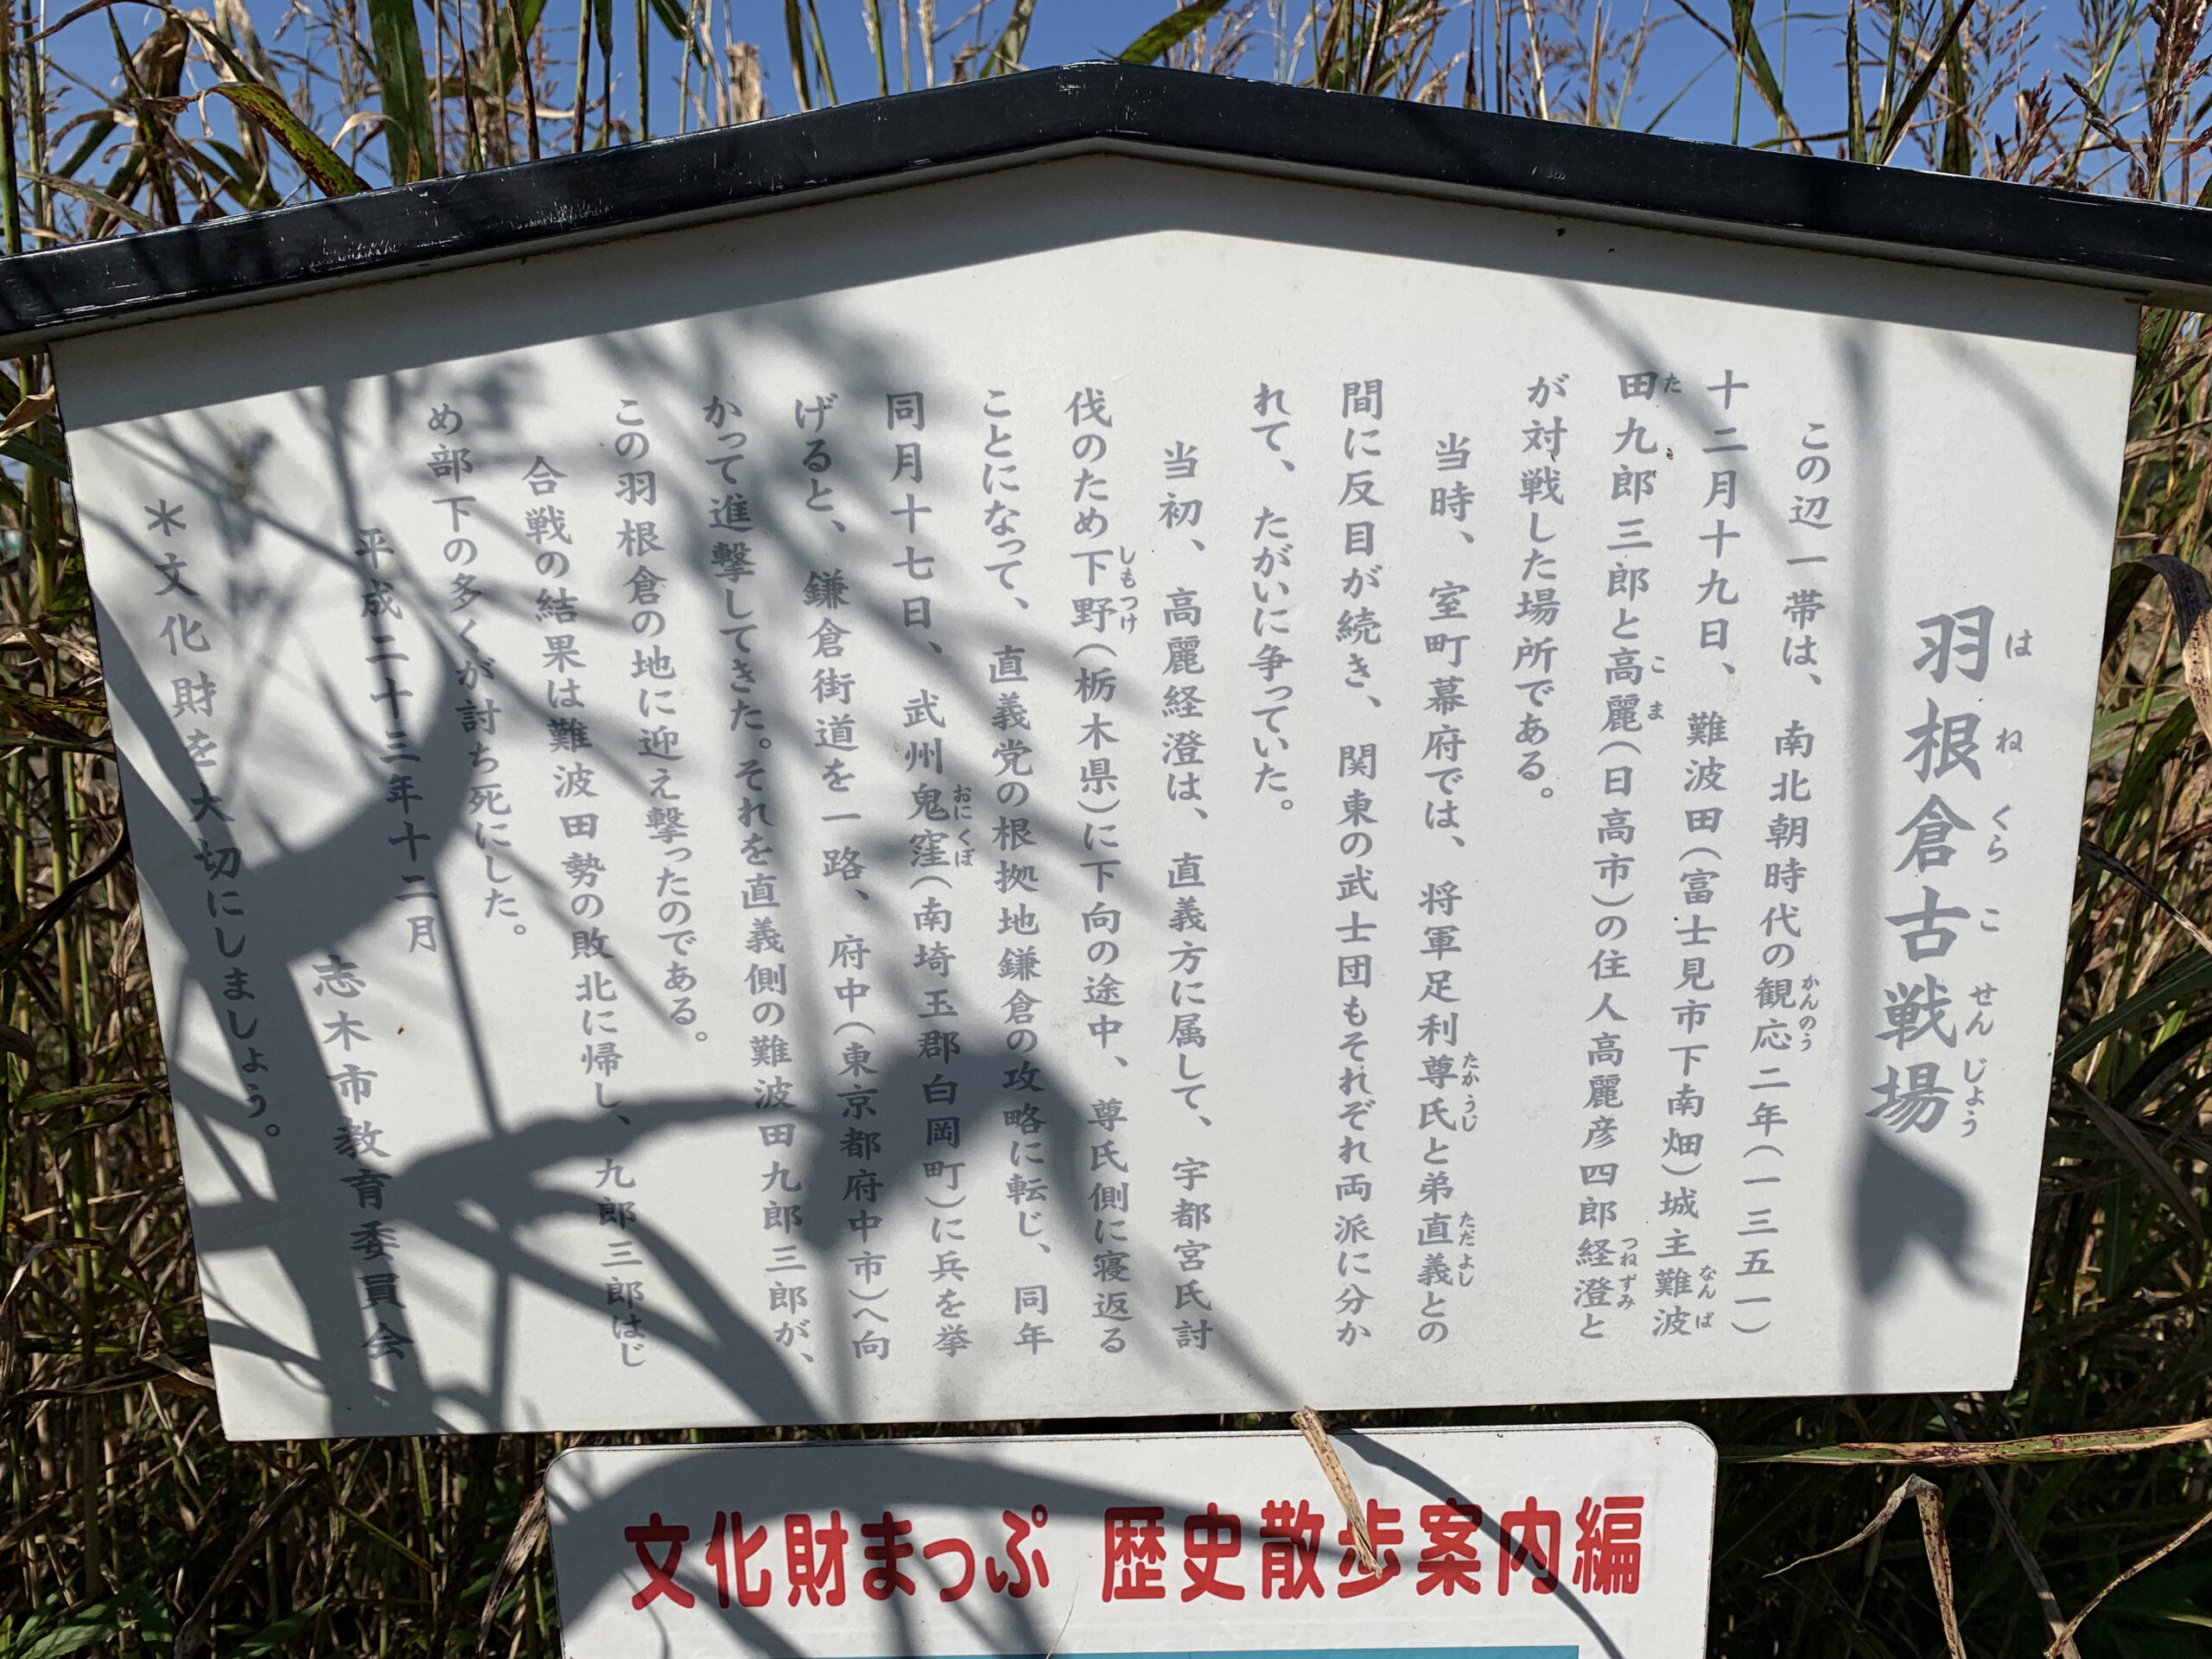 羽根倉古戦場
はねくらこせんじょう
この辺一帯は、南北朝時代の観応二年(一三五一)
かんのう
十二月十九日、難波田(富士見市下南畑)城主難波
なんば
田九郎三郎と高麗(日高市)の住人高麗彦四郎経澄と
た こま つねずみ
が対戦した場所である。
当時、室町幕府では、将軍足利尊氏と弟直義との
たかうじ ただよし
間に反目が続き、関東の武士団もそれぞれ両派に分か
れて、たがいに争っていた。
当初、高麗経澄は、直義方に属して、宇都宮氏討
伐のため下野(栃木県)に下向の途中、尊氏側に寝返る
しもつけ
ことになって、直義党の根拠地鎌倉の攻略に転じ、同年
同月十七日、武州鬼窪(南埼玉郡白岡町)に兵を挙
おにくぼ
げると、鎌倉街道を一路、府中(東京都府中市)へ向
かって進撃してきた。それを直義側の難波田九郎三郎が、
この羽根倉の地に迎え撃ったのである。
合戦の結果は難波田勢の敗北に帰し、九郎三郎はじ
め部下の多くが討ち死にした。
平成二十三年十二月
志木市教育委員会
＊文化財を大切にしましょう。
文化財まっぷ 歴史散歩案内編